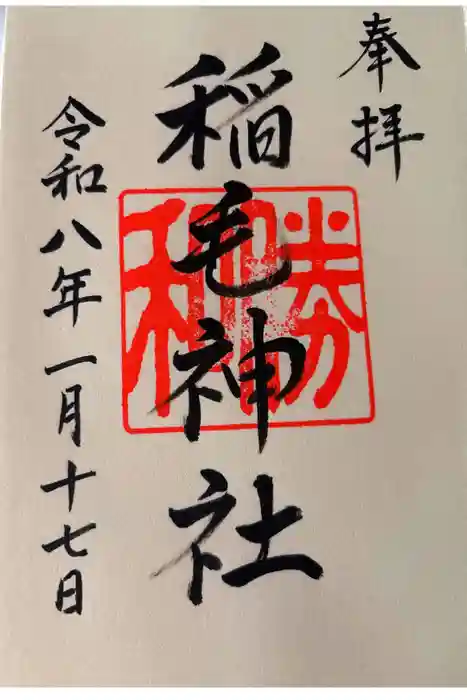 奉拝
稲毛神社
勝利
令和八年一月十七日